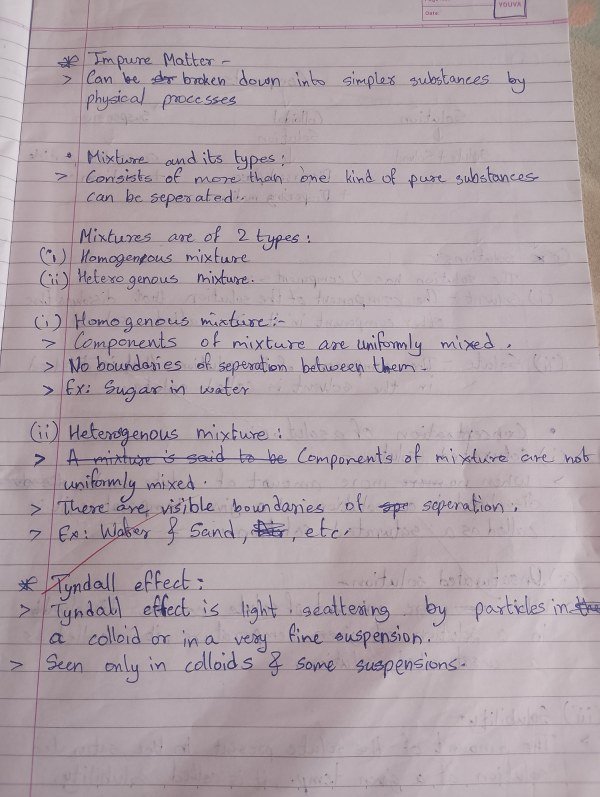 Date:
YOUVA
* Impure Matter -
> Can be broken down into simpler substances by
physical processes
• Mixture and its types:
> Consists of more than one kind of pure substances
can be seperated
Mixtures are of 2 types:
(i) Homogenous mixture
(ii) Heterogenous mixture.
(i) Homogenous mixture:-
> Components of mixture are uniformly mixed.
> No boundaries of seperation between them.
> Ex: Sugar in water
(ii) Heterogenous mixture:
> A mixture is said to be Components of mixture are not
uniformly mixed.
> There are visible boundaries of seperation.
> Ex: Water & Sand, , etc.
* Tyndall effect:
> Tyndall effect is light scattering by particles in
a colloid or in a very fine suspension.
> Seen only in colloids & some suspensions.